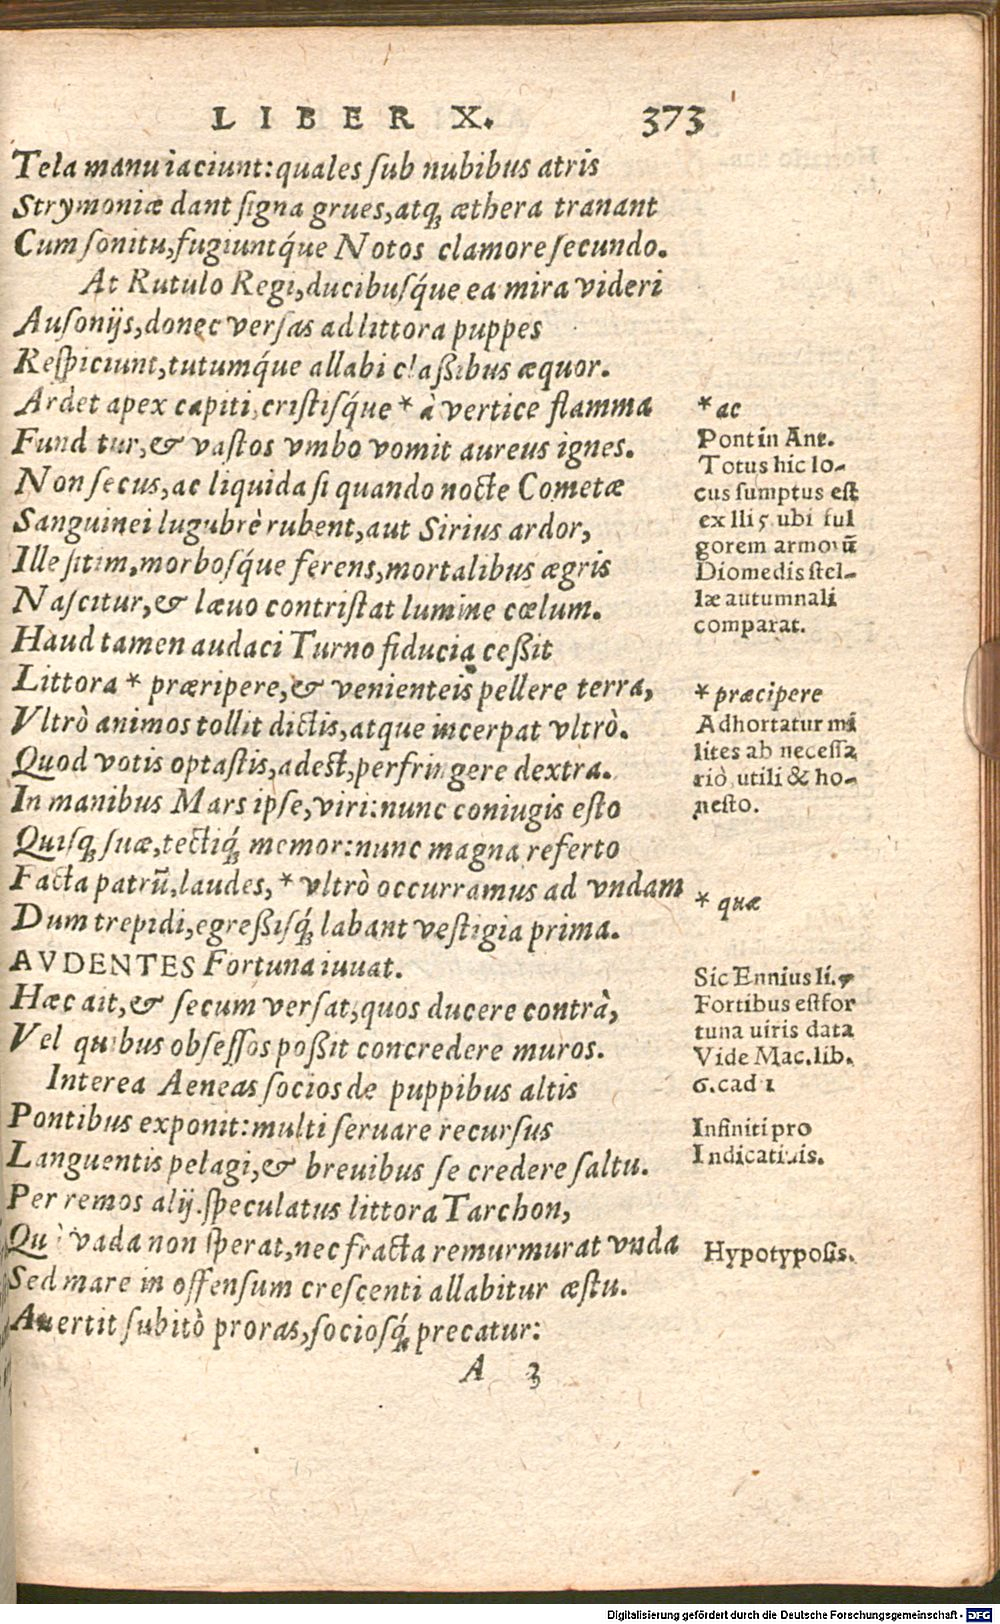 LIBER X. 373
Tela manu iaciunt: quales ſub nubibus atris
Strymoniæ dant ſigna grues, atq́; æthera tranant
Cum ſonitu, fugiuntq́ue Notos clamore ſecundo.
At Rutulo Regi, ducibuſq́ue ea mira videri
Auſonijs, donec verſas ad littora puppes
Reſpiciunt, tutumq́ue allabi claßibus æquor.
Ardet apex capiti, criſtiſq́ue * à vertice flamma
Fund tur, & vaſtos vmbo vomit aureus ignes.
Non ſecus, ac liquida ſi quando nocte Cometæ
Sanguinei lugubrè rubent, aut Sirius ardor,
Ille ſitim, morboſq́ue ferens, mortalibus ægris
Naſcitur, & læuo contriſtat lumine cœlum.
Haud tamen audaci Turno fiducia ceßit
Littora * præripere, & venienteis pellere terra,
Vltrò animos tollit dictis, atque incerpat vltrò.
Quod votis optaſtis, adeſt, perfringere dextra.
In manibus Mars ipſe, viri: nunc coniugis eſto
Quiſq; ſuæ, tectiq́; memor: nunc magna referto
Facta patrũ, laudes, * vltrò occurramus ad vndam
Dum trepidi, egreßiſq́; labant veſtigia prima.
AVDENTES Fortuna iuuat.
Hæc ait, & ſecum verſat, quos ducere contrà,
Vel quibus obſeſſos poßit concredere muros.
Interea Aeneas ſocios de puppibus altis
Pontibus exponit: multi ſeruare recurſus
Languentis pelagi, & breuibus ſe credere ſaltu.
Per remos alij. ſpeculatus littora Tarchon,
Qu vada non ſperat, nec fracta remurmurat vnda
Sed mare in offenſum creſcenti allabitur æſtu.
Auertit ſubitò proras, ſocioſq́; precatur:
A 3
* ac
Pont in Ant.
Totus hic lo-
cus ſumptus eſt
ex Ili 5. ubi ful
gorem armorũ
Diomedis ſtel-
læ autumnali
comparat.
* præcipere
Adhortatur mi
lites ab neceſſa
riò, utili & ho-
neſto.
* quæ
Sic Ennius li. 7
Fortibus eſt for
tuna uiris data
Vide Mac. lib.
6. cad 1
Infiniti pro
Indicatiuis.
Hypotypoſis.
Digitalisierung gefördert durch die Deutsche Forschungsgemeinschaft - DFG